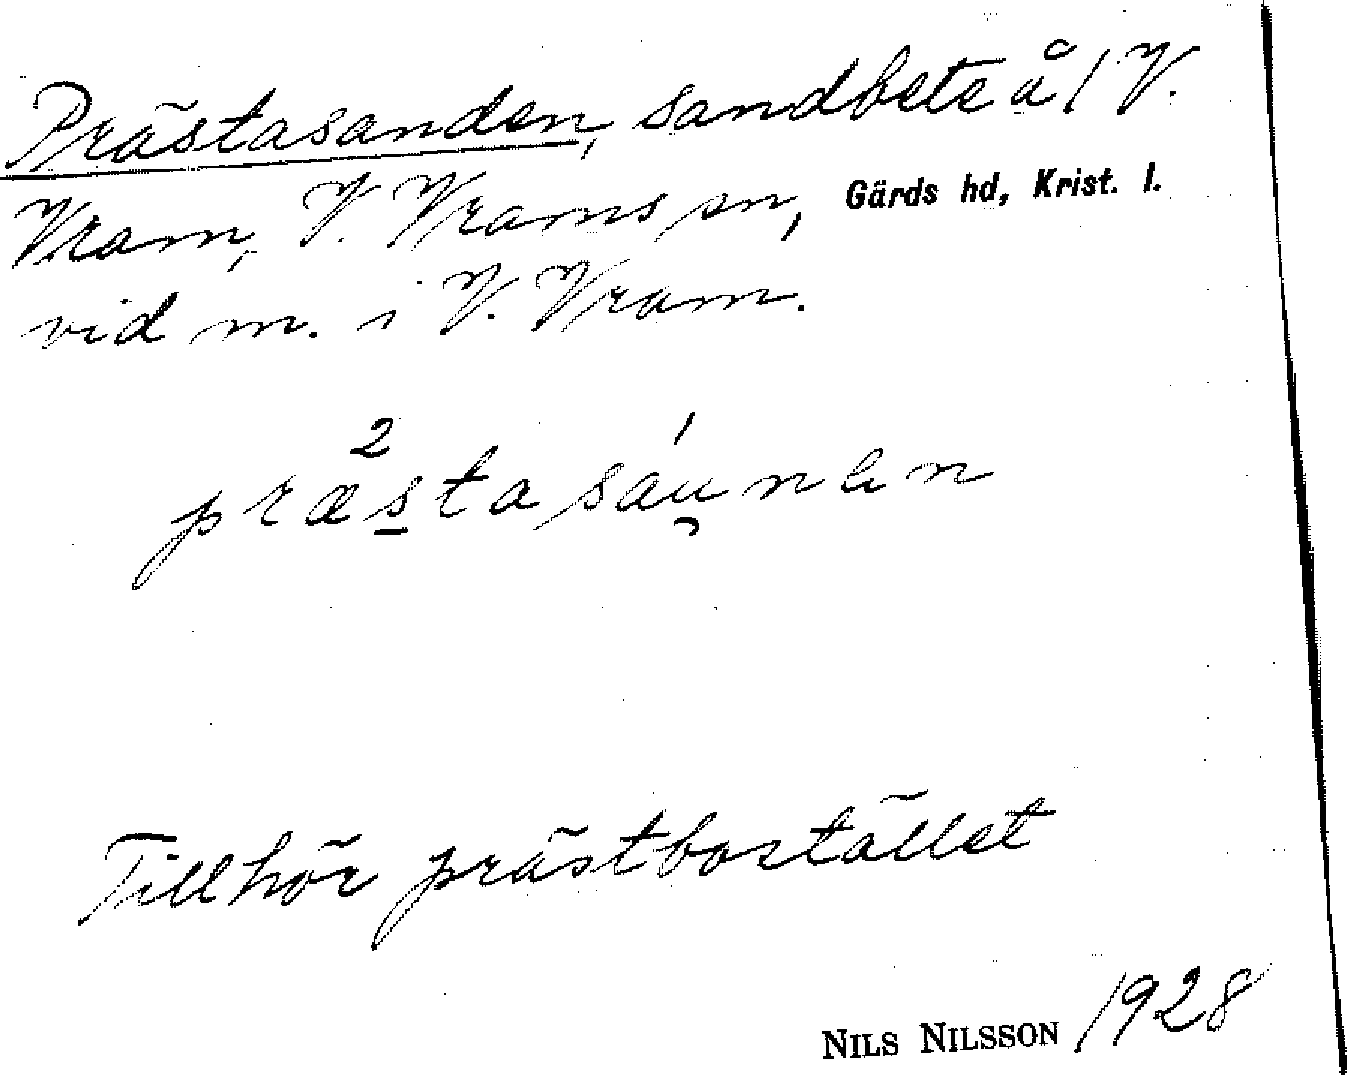 Prästasanden, sandbete å 1 V.
Vram, V. Vrams sn, Gärds hd, Krist. l.
vid m. i V. Vram.
2 1
præs̲tasáu̯nen
Tillhör prästbostället
NILS NILSSON 1928